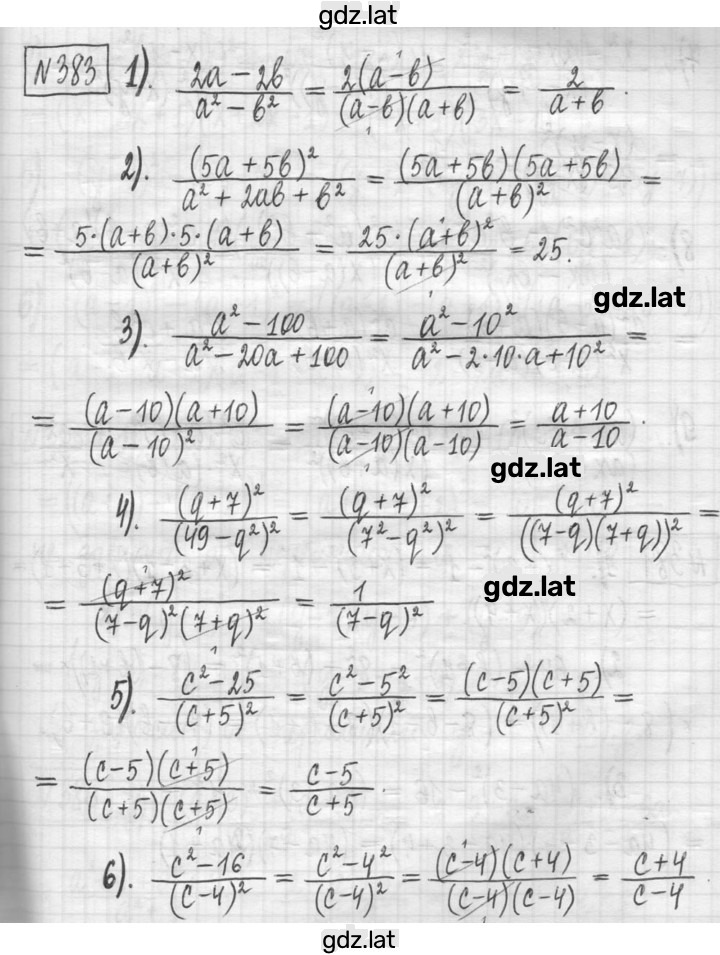 gdz.lat
N383 1). (2a − 2b)/(a² − b²) = (2(a − b))/((a − b)(a + b)) = 2/(a + b).
2). (5a + 5b)²/(a² + 2ab + b²) = ((5a + 5b)(5a + 5b))/(a + b)² =
= (5·(a + b)·5·(a + b))/(a + b)² = (25·(a + b)²)/(a + b)² = 25.
gdz.lat
3). (a² − 100)/(a² − 20a + 100) = (a² − 10²)/(a² − 2·10·a + 10²) =
= ((a − 10)(a + 10))/(a − 10)² = ((a − 10)(a + 10))/((a − 10)(a − 10)) = (a + 10)/(a − 10).
gdz.lat
4). (q + 7)²/(49 − q²)² = (q + 7)²/(7² − q²)² = (q + 7)²/((7 − q)(7 + q))² =
= (q + 7)²/((7 − q)²(7 + q)²) = 1/(7 − q)²
gdz.lat
5). (c² − 25)/(c + 5)² = (c² − 5²)/(c + 5)² = ((c − 5)(c + 5))/(c + 5)² =
= ((c − 5)(c + 5))/((c + 5)(c + 5)) = (c − 5)/(c + 5).
6). (c² − 16)/(c − 4)² = (c² − 4²)/(c − 4)² = ((c − 4)(c + 4))/((c − 4)(c − 4)) = (c + 4)/(c − 4).
gdz.lat